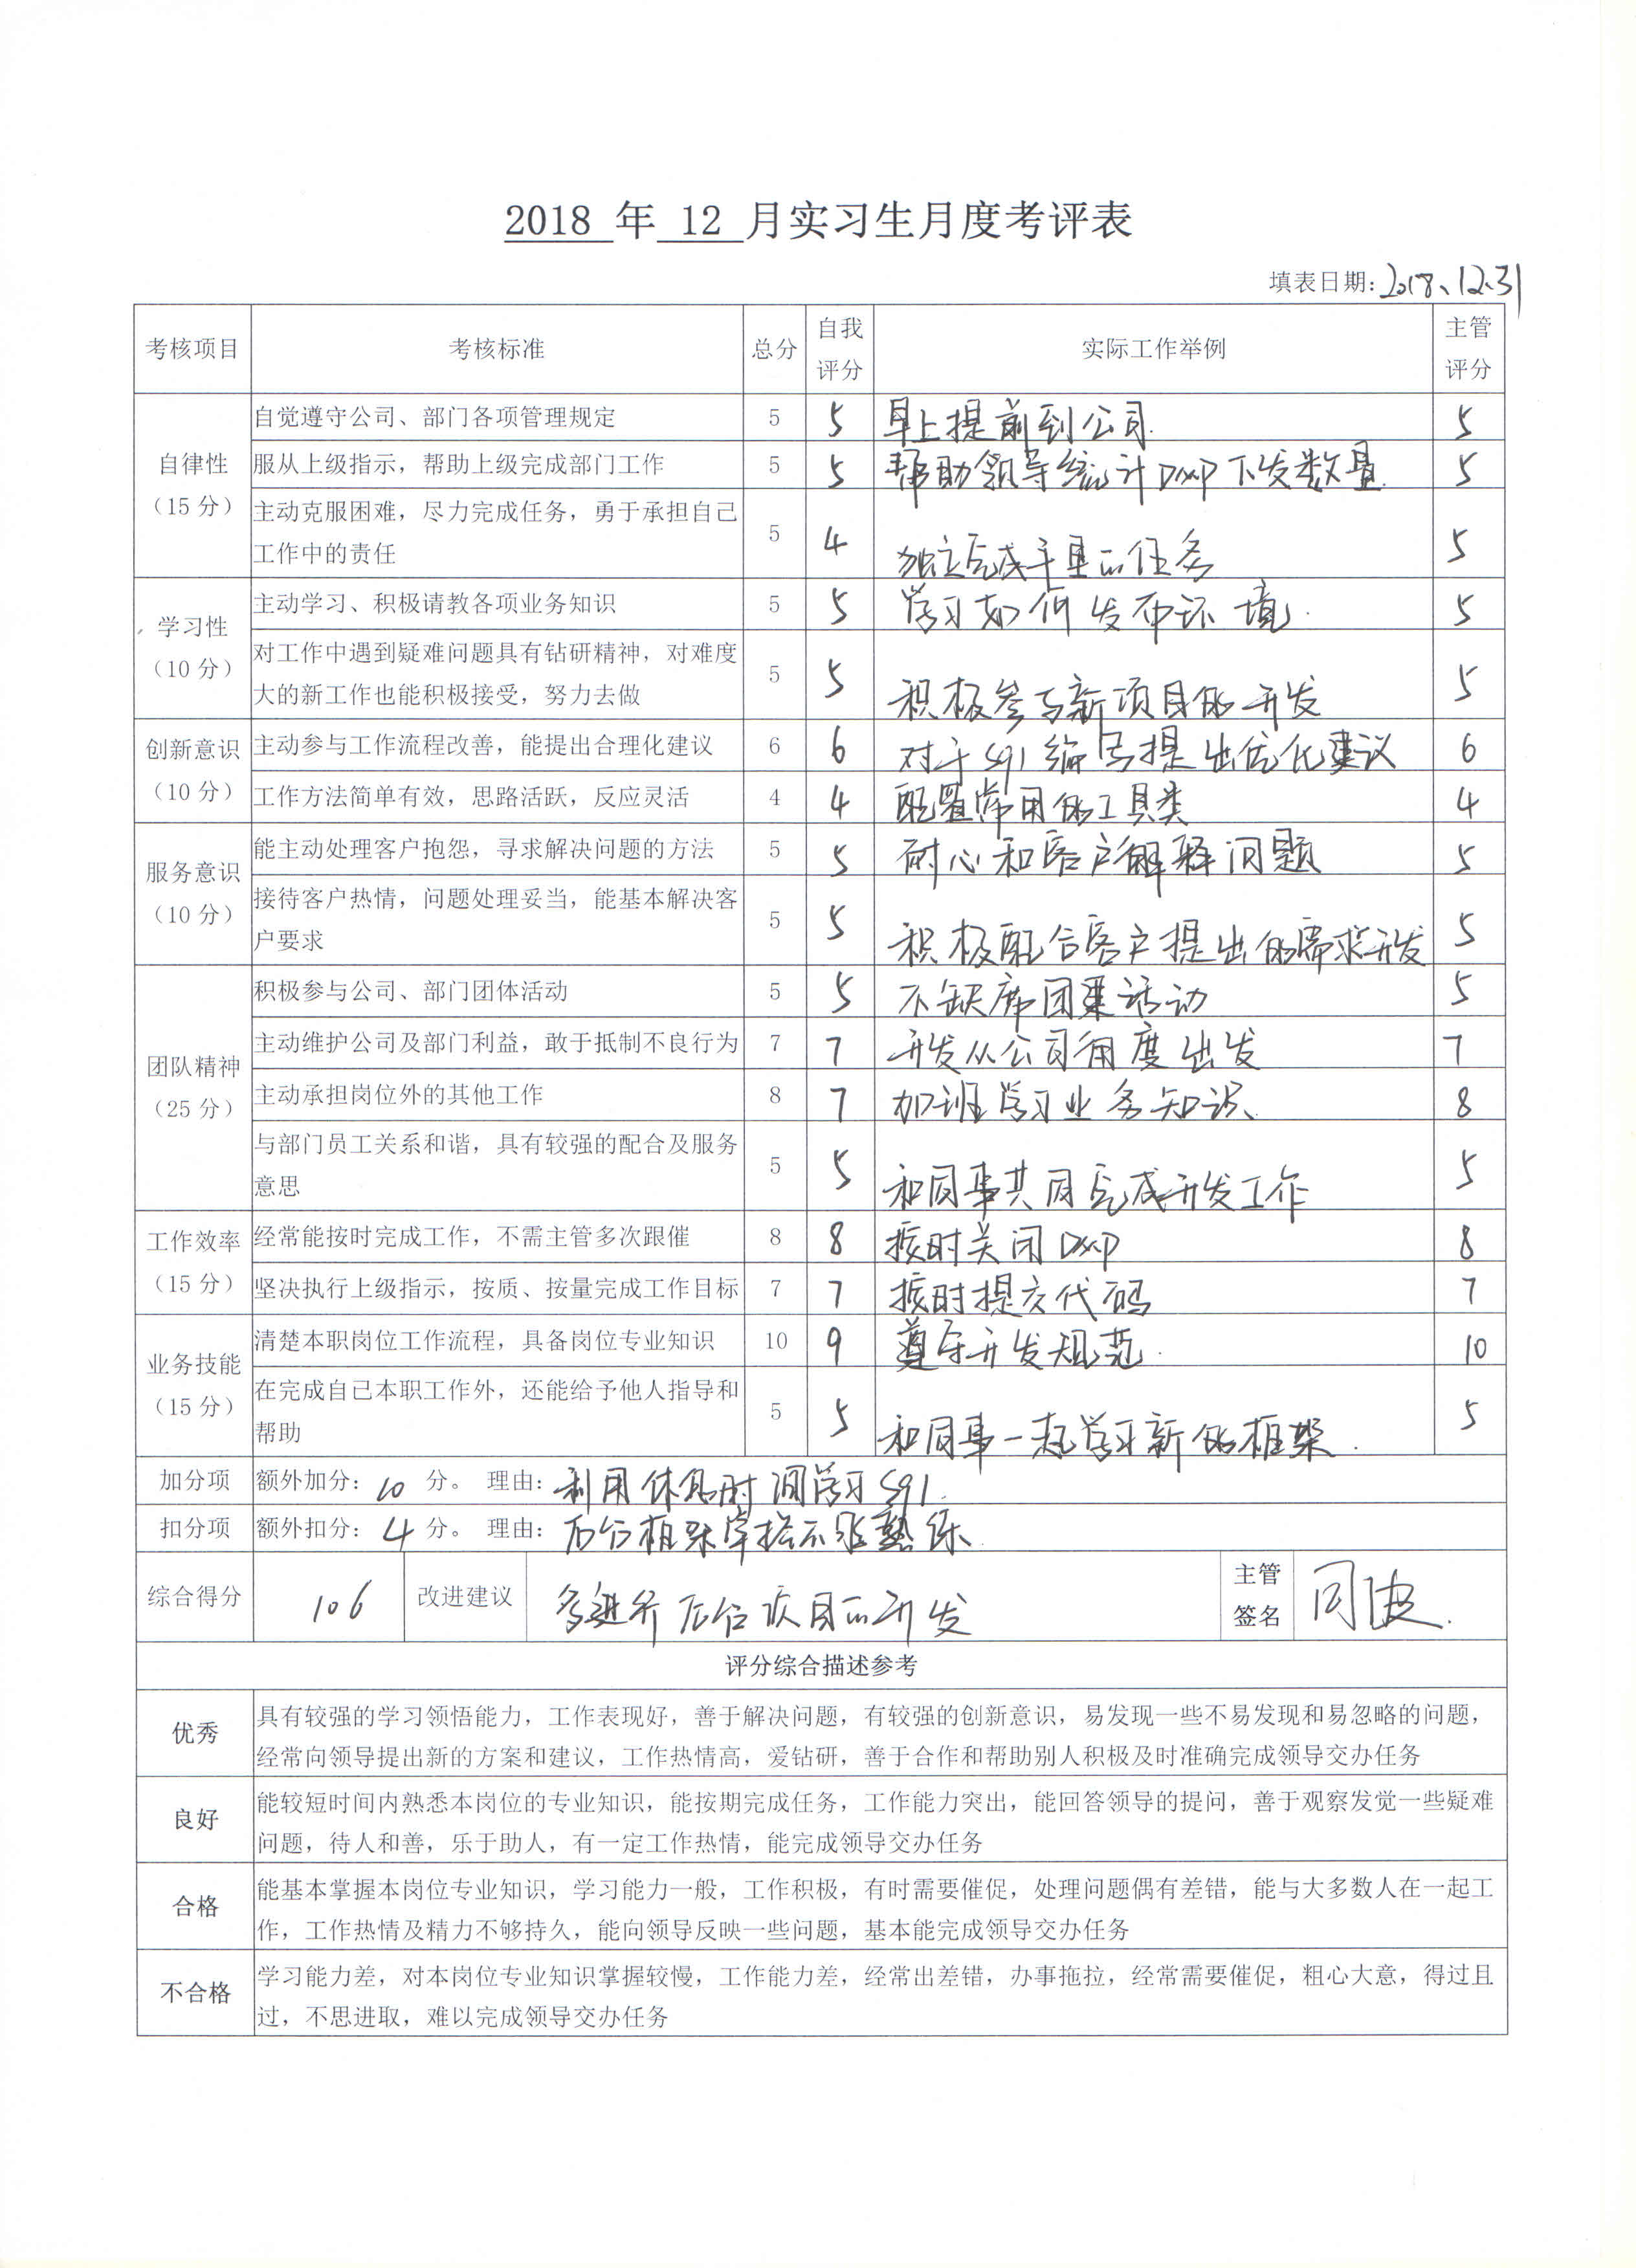 2018 年 12 月实习生月度考评表
填表日期：2018、12、31
考核项目 考核标准 总分 自我评分 实际工作举例 主管评分
自律性（15 分）
自觉遵守公司、部门各项管理规定 5 5 早上提前到公司. 5
服从上级指示，帮助上级完成部门工作 5 5 帮助领导统计 下发数量. 5
主动克服困难，尽力完成任务，勇于承担自己
工作中的责任 5 4 独立完成 任务 5
学习性（10 分）
主动学习、积极请教各项业务知识 5 5 学习如何发布环境. 5
对工作中遇到疑难问题具有钻研精神，对难度
大的新工作也能积极接受，努力去做 5 5 积极参与新项目的开发 5
创新意识（10 分）
主动参与工作流程改善，能提出合理化建议 6 6 对于 编号提出优化建议 6
工作方法简单有效，思路活跃，反应灵活 4 4 配置常用的工具类 4
服务意识（10 分）
能主动处理客户抱怨，寻求解决问题的方法 5 5 耐心和客户解释问题 5
接待客户热情，问题处理妥当，能基本解决客
户要求 5 5 积极配合客户提出的需求开发 5
团队精神（25 分）
积极参与公司、部门团体活动 5 5 不缺席团建活动 5
主动维护公司及部门利益，敢于抵制不良行为 7 7 开发从公司角度出发 7
主动承担岗位外的其他工作 8 7 加班学习业务知识、 8
与部门员工关系和谐，具有较强的配合及服务
意思 5 5 和同事共同完成开发工作 5
工作效率（15 分）
经常能按时完成工作，不需主管多次跟催 8 8 按时关闭 8
坚决执行上级指示，按质、按量完成工作目标 7 7 按时提交代码 7
业务技能（15 分）
清楚本职岗位工作流程，具备岗位专业知识 10 9 遵守开发规范. 10
在完成自己本职工作外，还能给予他人指导和
帮助 5 5 和同事一起学习新的框架. 5
加分项 额外加分：10 分。 理由：利用休息时间学习
扣分项 额外扣分：4 分。 理由：后台框架掌握不够熟练.
综合得分 106 改进建议 多进行后台项目的开发 主管签名
评分综合描述参考
优秀
具有较强的学习领悟能力，工作表现好，善于解决问题，有较强的创新意识，易发现一些不易发现和易忽略的问题，
经常向领导提出新的方案和建议，工作热情高，爱钻研，善于合作和帮助别人积极及时准确完成领导交办任务
良好
能较短时间内熟悉本岗位的专业知识，能按期完成任务，工作能力突出，能回答领导的提问，善于观察发觉一些疑难
问题，待人和善，乐于助人，有一定工作热情，能完成领导交办任务
合格
能基本掌握本岗位专业知识，学习能力一般，工作积极，有时需要催促，处理问题偶有差错，能与大多数人在一起工
作，工作热情及精力不够持久，能向领导反映一些问题，基本能完成领导交办任务
不合格
学习能力差，对本岗位专业知识掌握较慢，工作能力差，经常出差错，办事拖拉，经常需要催促，粗心大意，得过且
过，不思进取，难以完成领导交办任务